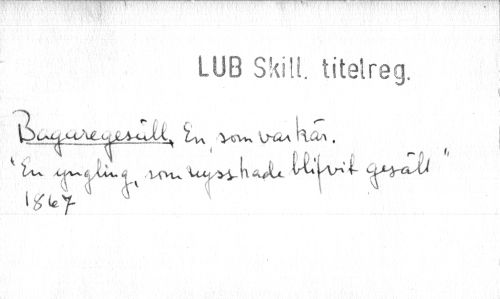 LUB Skill. titelreg.
Bagaregesäll, En, som var kär.
"En yngling, som nyss hade blifvit gesäll"
1867